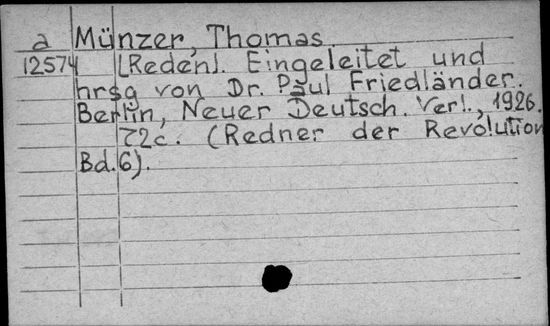 a Münzer, Thomas
12574 [Reden]. Eingeleitet und
hrsg von Dr. Paul Friedländer.
Berlin, Neuer Deutsch. Verl., 1926.
72c. (Redner der Revolution
Bd.6).